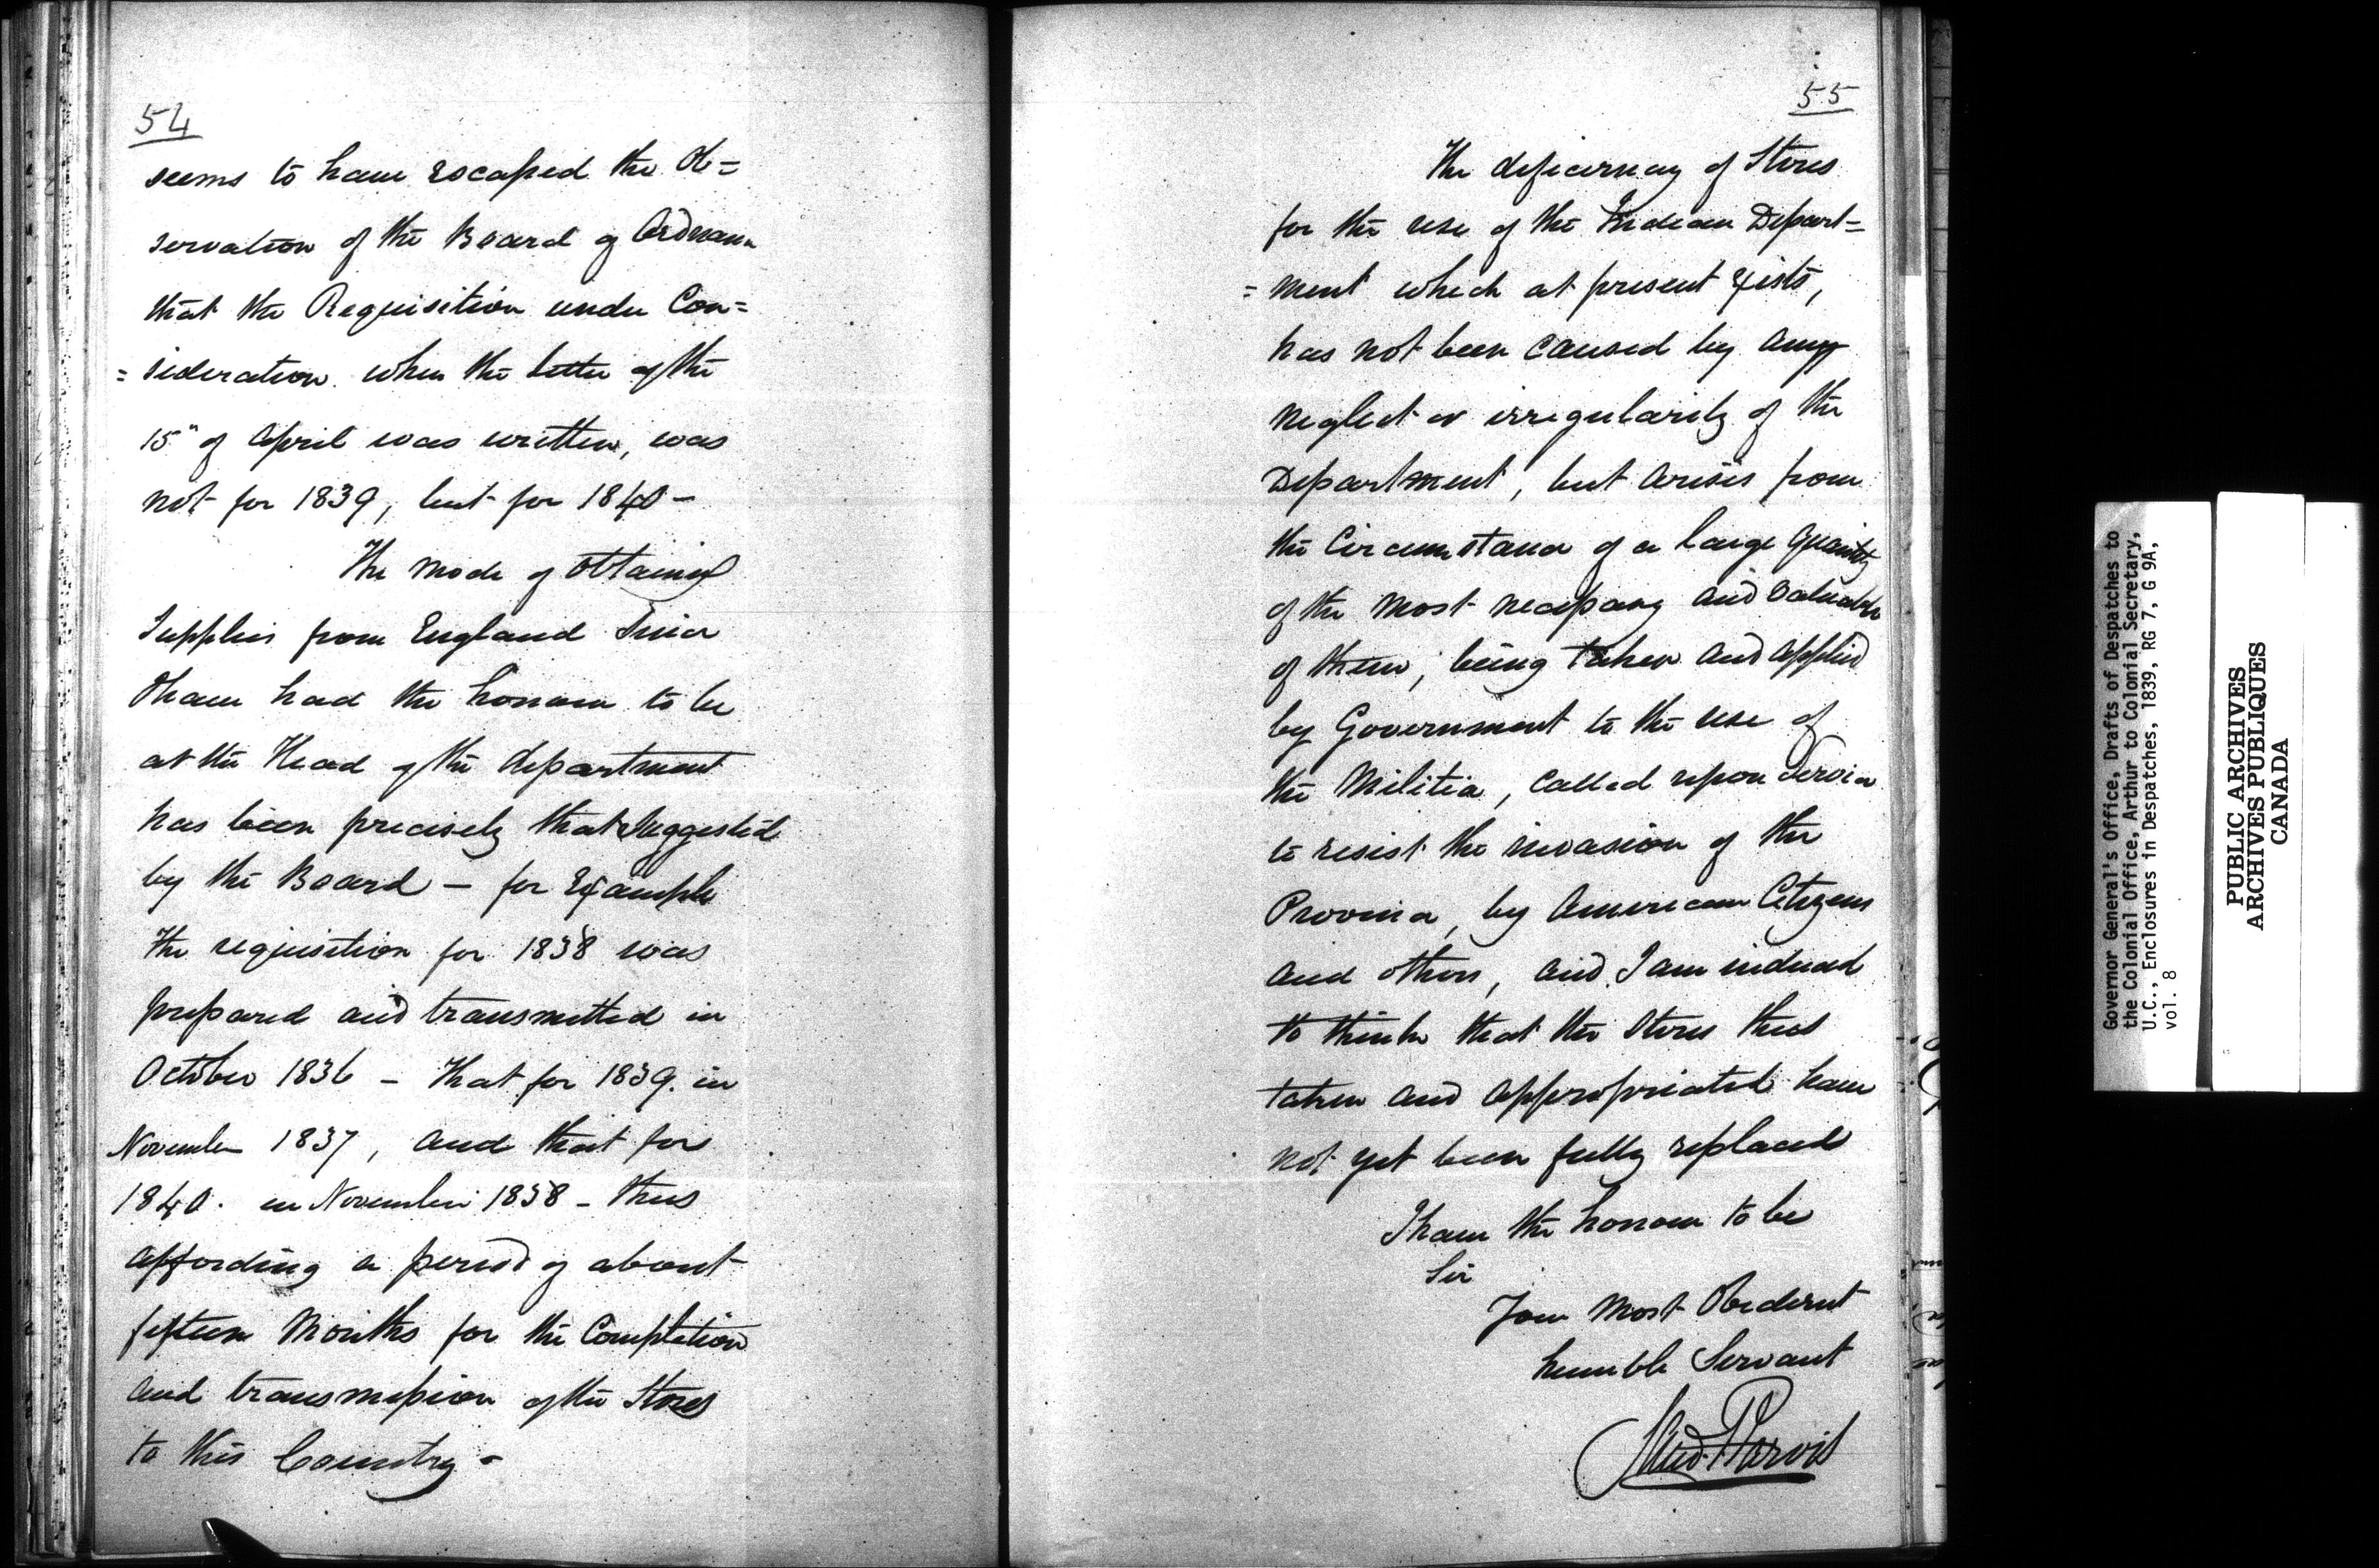 54
seems to have escaped the Ob=
servation of the Board of Ordnance
that the Requisition under Con=
=sideration when the letter of the
15" of April was written, was
not for 1839, but for 1840 -
The mode of obtaining
Supplies from England Since
I have had the honour to be
at the Head of the department
has been precisely that suggested
by the Board - for Example
The requisition for 1838 was
prepared and transmitted in
October 1836 - That for 1839. in
November 1837, and that for
1840. in November 1838 - thus
affording a period of about
fifteen Months for the Completion
and transmission of the Stores
to this Country -
55
The deficiency of Stores
for the use of the Indian Depart=
=ment which at present Exists,
has not been caused by any
neglect or irregularity of the
Department, but arises from
the Circumstance of a large quantity
of the most necessary and valuable
of them, being taken and applied
by Government to the use of
the Militia, called upon Service
to resist the invasion of the
Province, by American Citizens
and others, and I am induced
to think that the Stores thus
taken and appropriated have
not yet been fully replaced
I have the honour to be
Sir
Your Most Obedient
humble Servant
Jarvis
Governor General's Office, Drafts of Despatches to
the Colonial Office, Arthur to Colonial Secretary,
U.C., Enclosures in Despatches, 1839, RG 7, G 9A,
vol. 8
PUBLIC ARCHIVES
ARCHIVES PUBLIQUES
CANADA